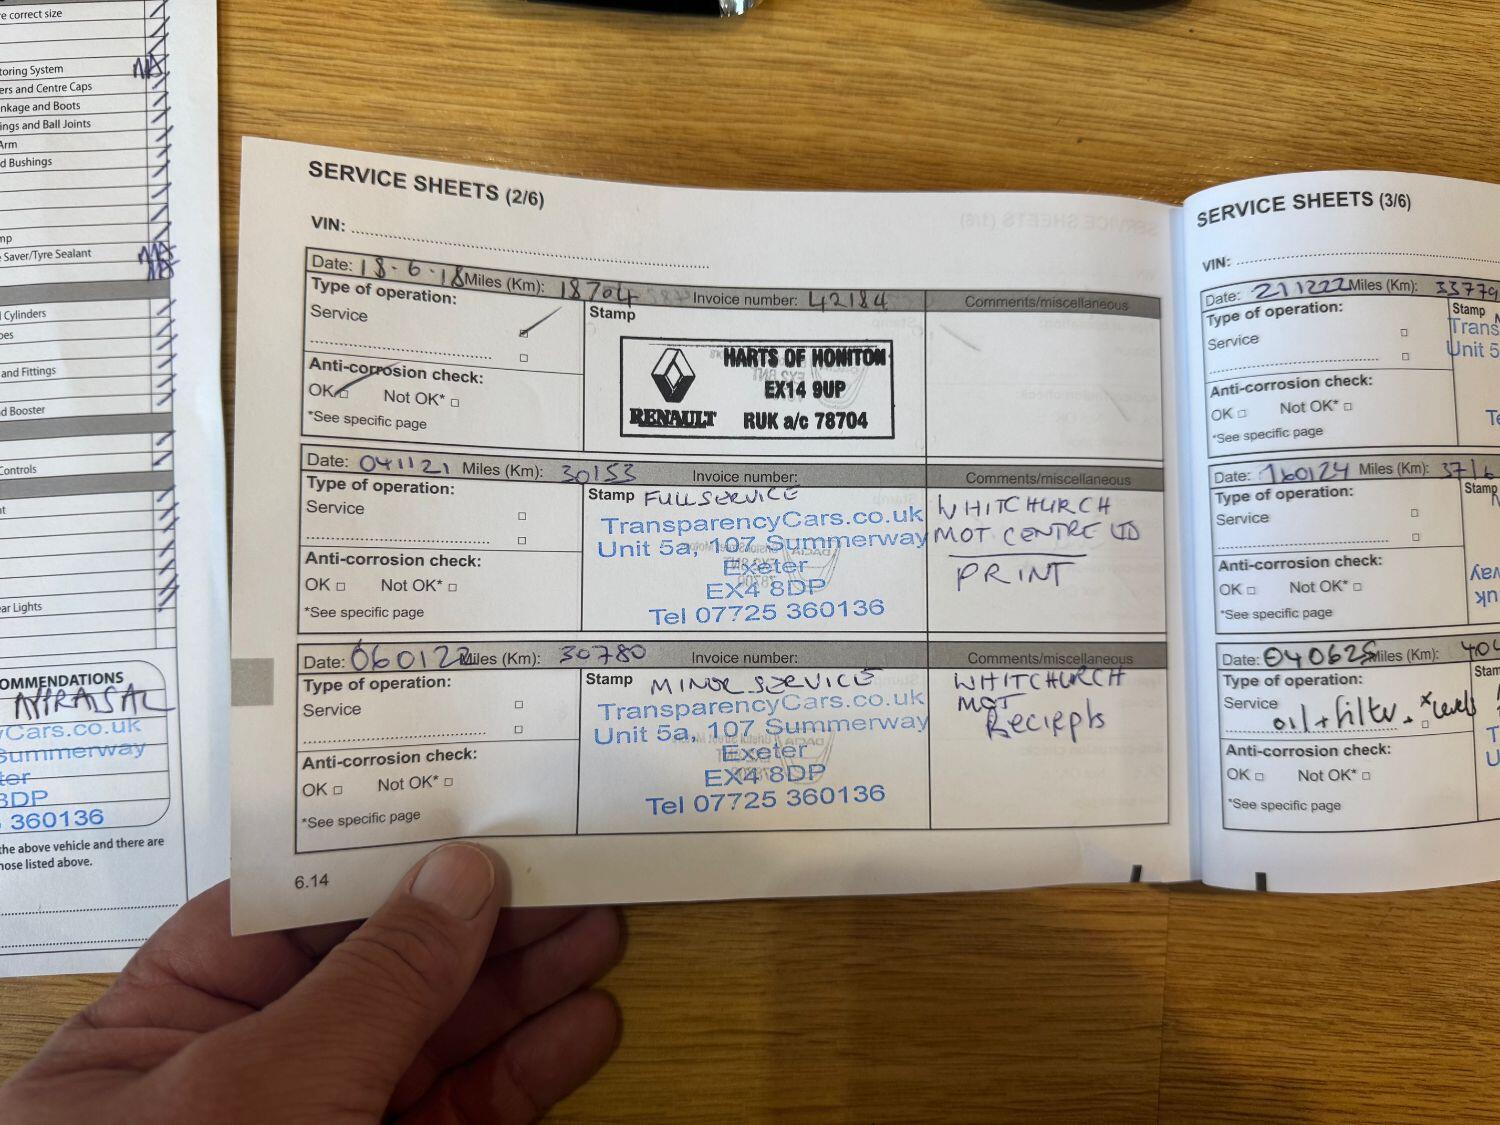 re correct size
toring System
ers and Centre Caps
nkage and Boots
ings and Ball Joints
Arm
d Bushings
mp
Saver/Tyre Sealant
Cylinders
pes
and Fittings
d Booster
Controls
nt
ear Lights
OMMENDATIONS
APPRAISAL
yCars.co.uk
Summerway
ter
8DP
360136
the above vehicle and there are
hose listed above.
SERVICE SHEETS (2/6)
VIN:
Date: 18-6-18 Miles (Km): 18704 Invoice number: 42184 Comments/miscellaneous
Type of operation:
Service
Stamp
HARTS OF HONITON
EX14 9UP
RENAULT RUK a/c 78704
Anti-corrosion check:
OK Not OK*
*See specific page
Date: 041121 Miles (Km): 30153 Invoice number: Comments/miscellaneous
Type of operation:
Service
Stamp FULL SERVICE
TransparencyCars.co.uk
Unit 5a, 107 Summerway
Exeter
EX4 8DP
Tel 07725 360136
WHITCHURCH
MOT CENTRE LTD
PRINT
Anti-corrosion check:
OK Not OK*
*See specific page
Date: 060122 Miles (Km): 30780 Invoice number: Comments/miscellaneous
Type of operation:
Service
Stamp MINOR SERVICE
TransparencyCars.co.uk
Unit 5a, 107 Summerway
Exeter
EX4 8DP
Tel 07725 360136
WHITCHURCH
MOT
Reciepts
Anti-corrosion check:
OK Not OK*
*See specific page
6.14
SERVICE SHEETS (3/6)
VIN:
Date: 211222 Miles (Km): 33779
Type of operation:
Service
Stamp
Trans
Unit 5
Anti-corrosion check:
OK Not OK*
*See specific page
Te
Date: 160124 Miles (Km): 
Type of operation:
Service
Stamp
Anti-corrosion check:
OK Not OK*
*See specific page
way
uk
Date: 040625 Miles (Km): 404
Type of operation:
Service
oil + filter + levels
Stam
T
U
Anti-corrosion check:
OK Not OK*
*See specific page